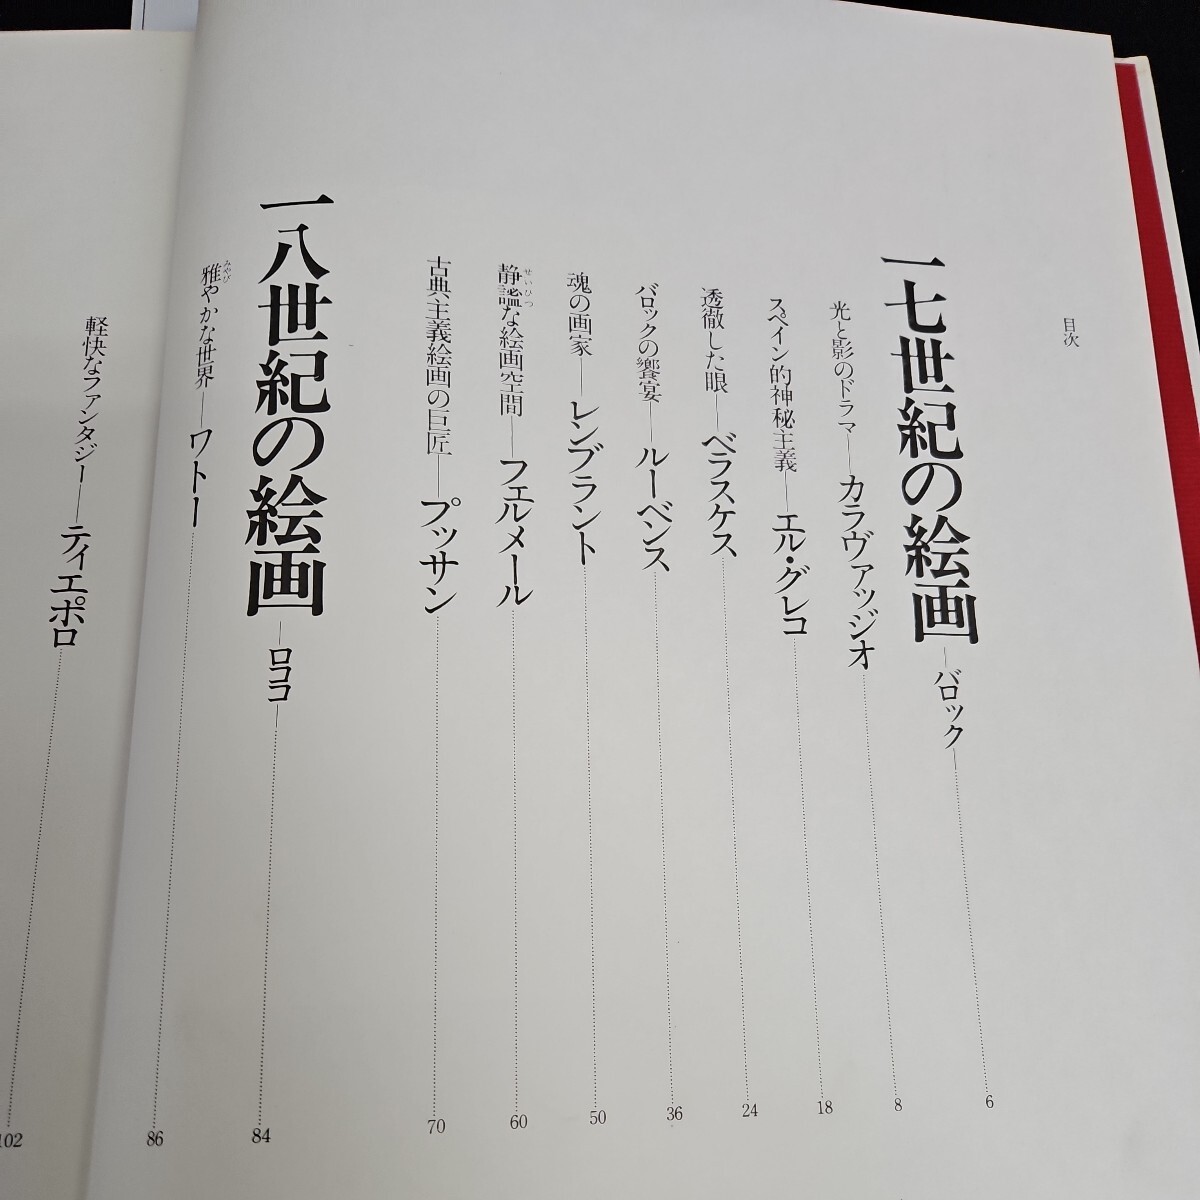 目次
一七世紀の絵画―バロック―6
光と影のドラマ―カラヴァッジオ8
スペイン的神秘主義―エル・グレコ18
透徹した眼―ベラスケス24
バロックの饗宴―ルーベンス36
魂の画家―レンブラント50
静謐な絵画空間―フェルメール60
せいひつ
古典主義絵画の巨匠―プッサン70
一八世紀の絵画―ロココ―84
雅やかな世界―ワトー86
みやび
軽快なファンタジー―ティエポロ102